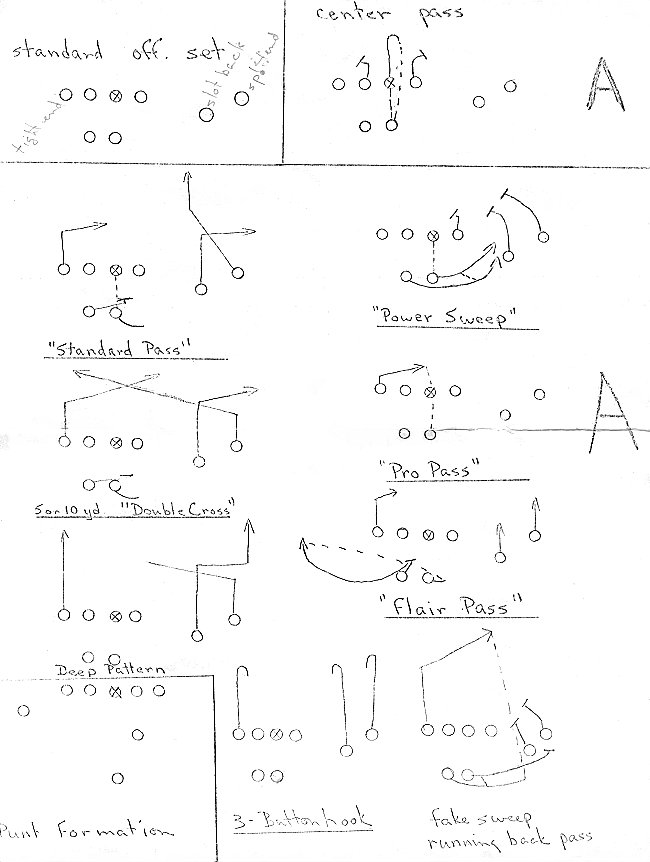 standard off. set
tight end
slot back
spolit end
center pass
A
"Standard Pass"
"Power Sweep"
5 or 10 yd. "Double Cross"
"Pro Pass"
A
Deep Pattern
"Flair Pass"
Punt Formation
3-Buttonhook
fake sweep
running back pass